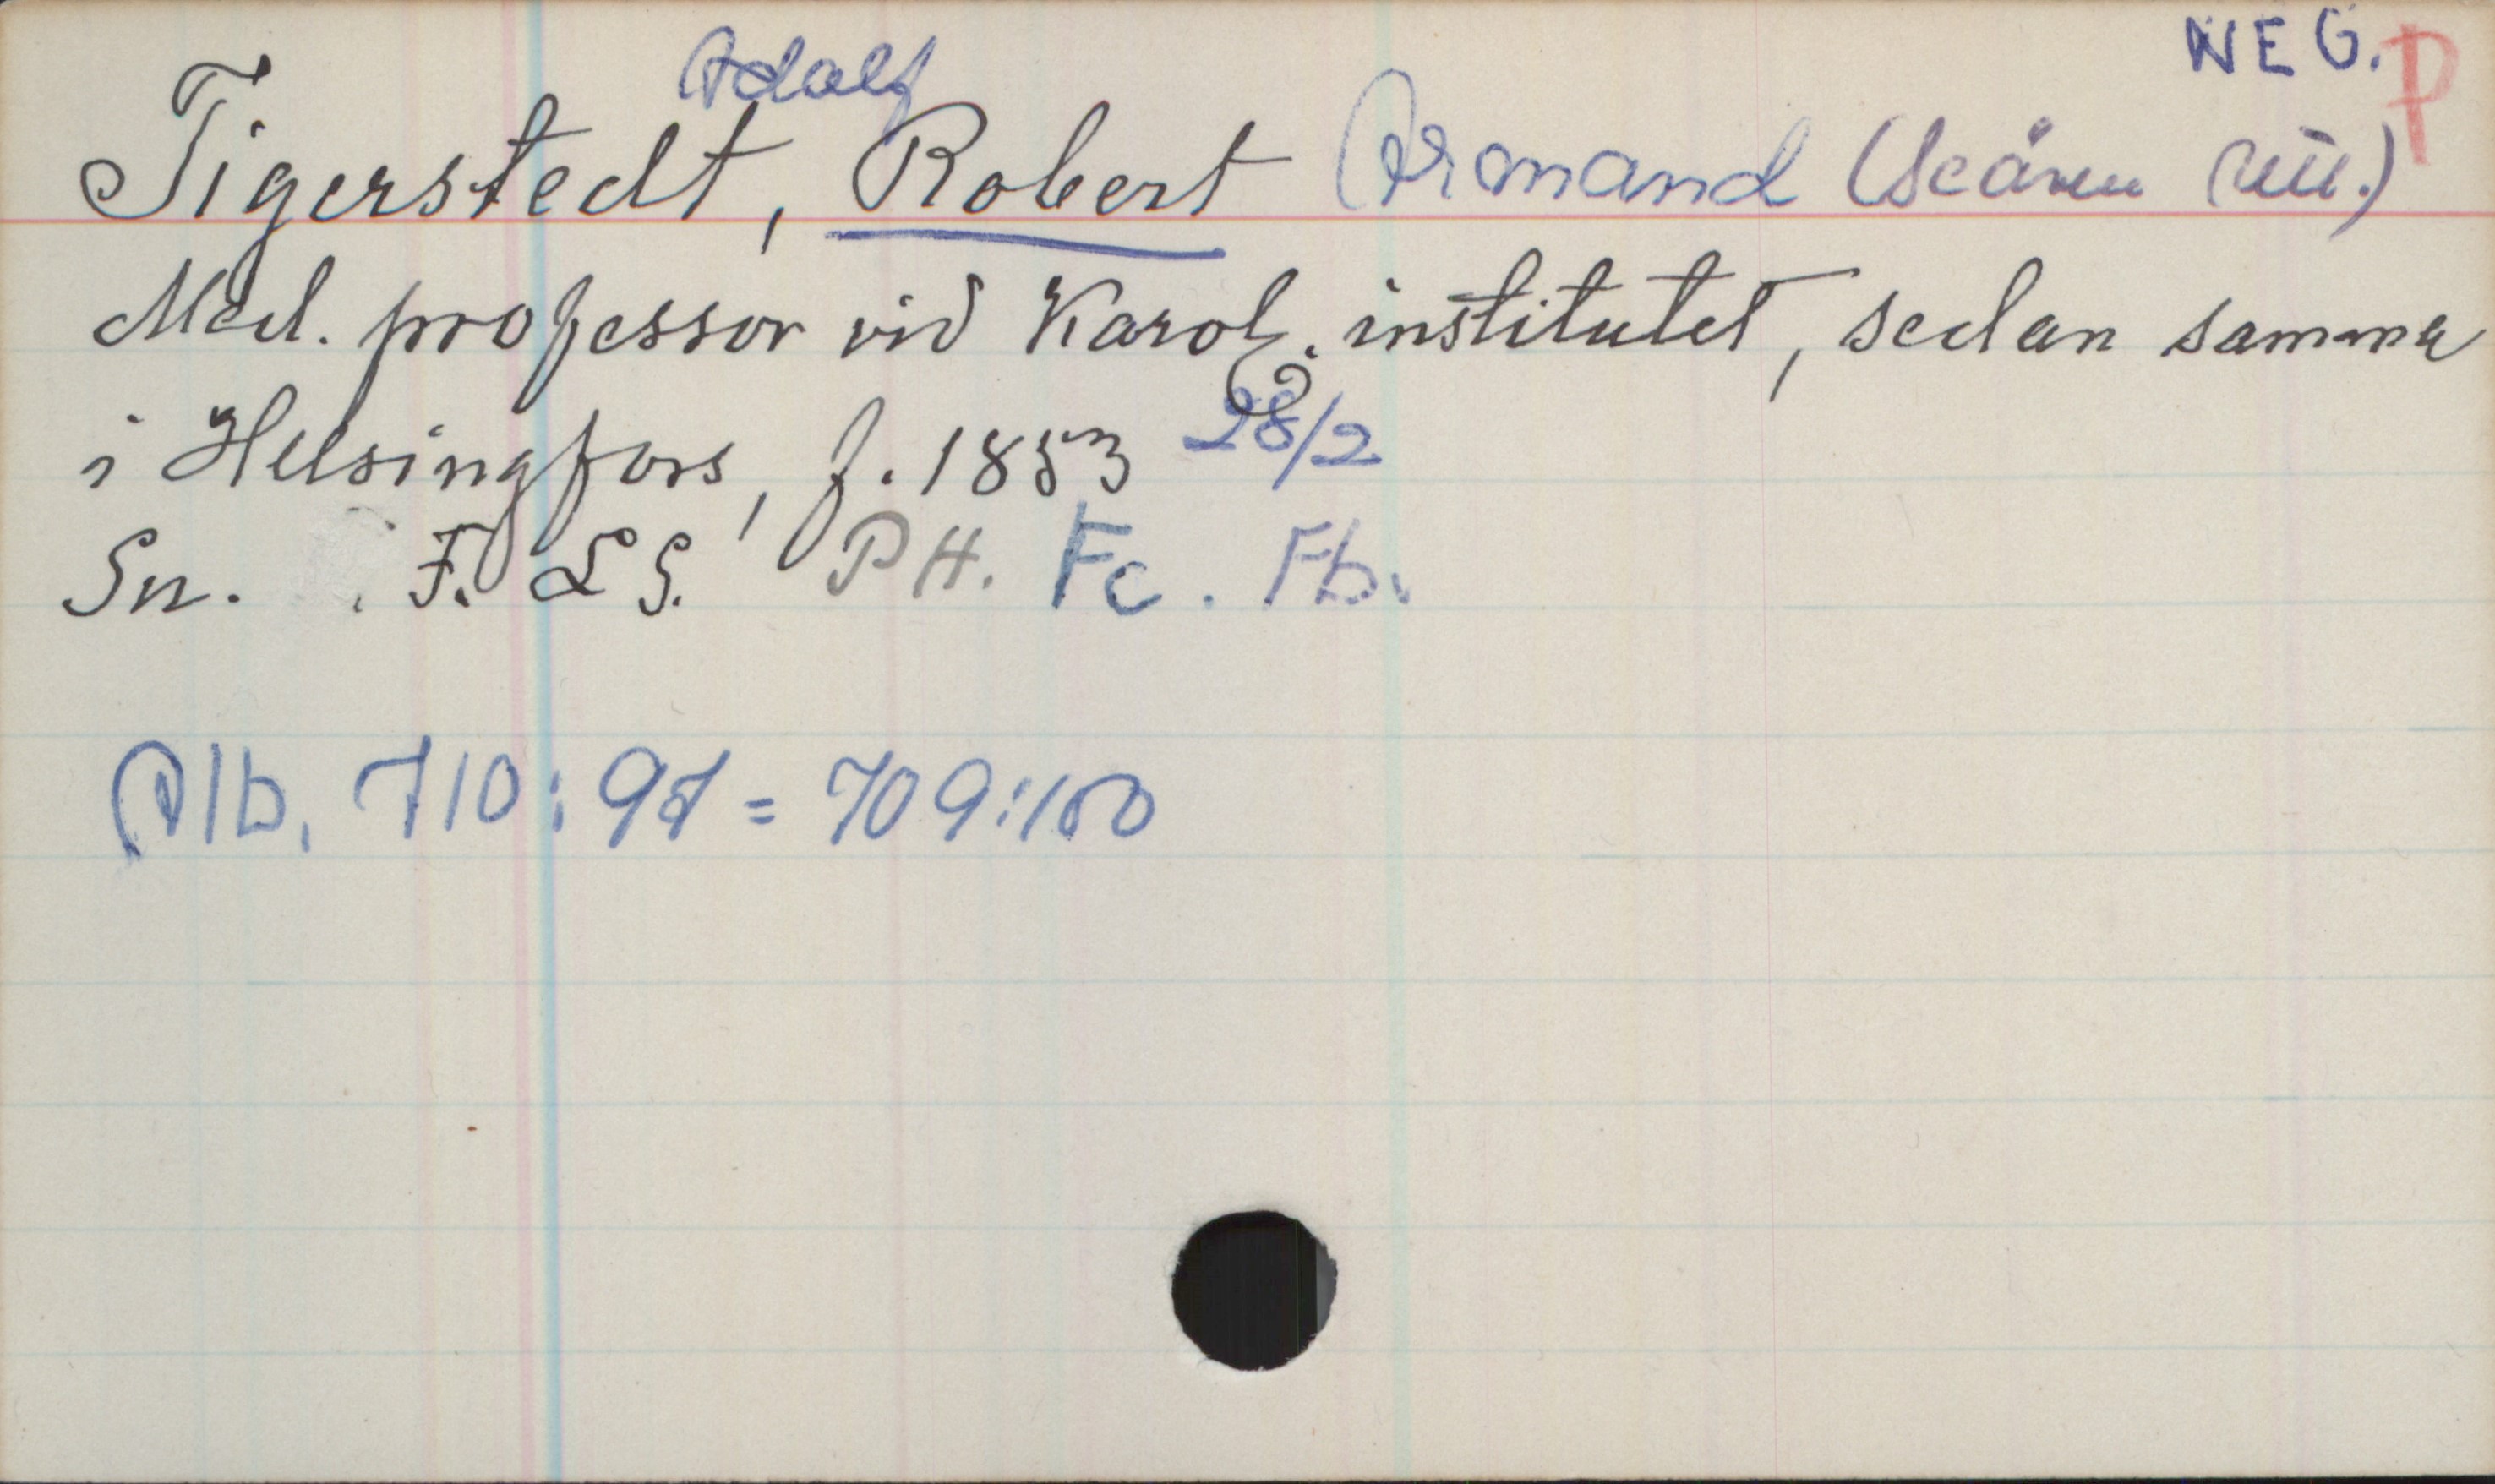 NEG. P
Adolf
Tigerstedt, Robert Armand (
Med. professor vid Karol. institutet, sedan samma
i Helsingfors, f. 1853 28/2
Sn. F. LS. PH. Fc. Fb.
Alb. 710: = 709:100